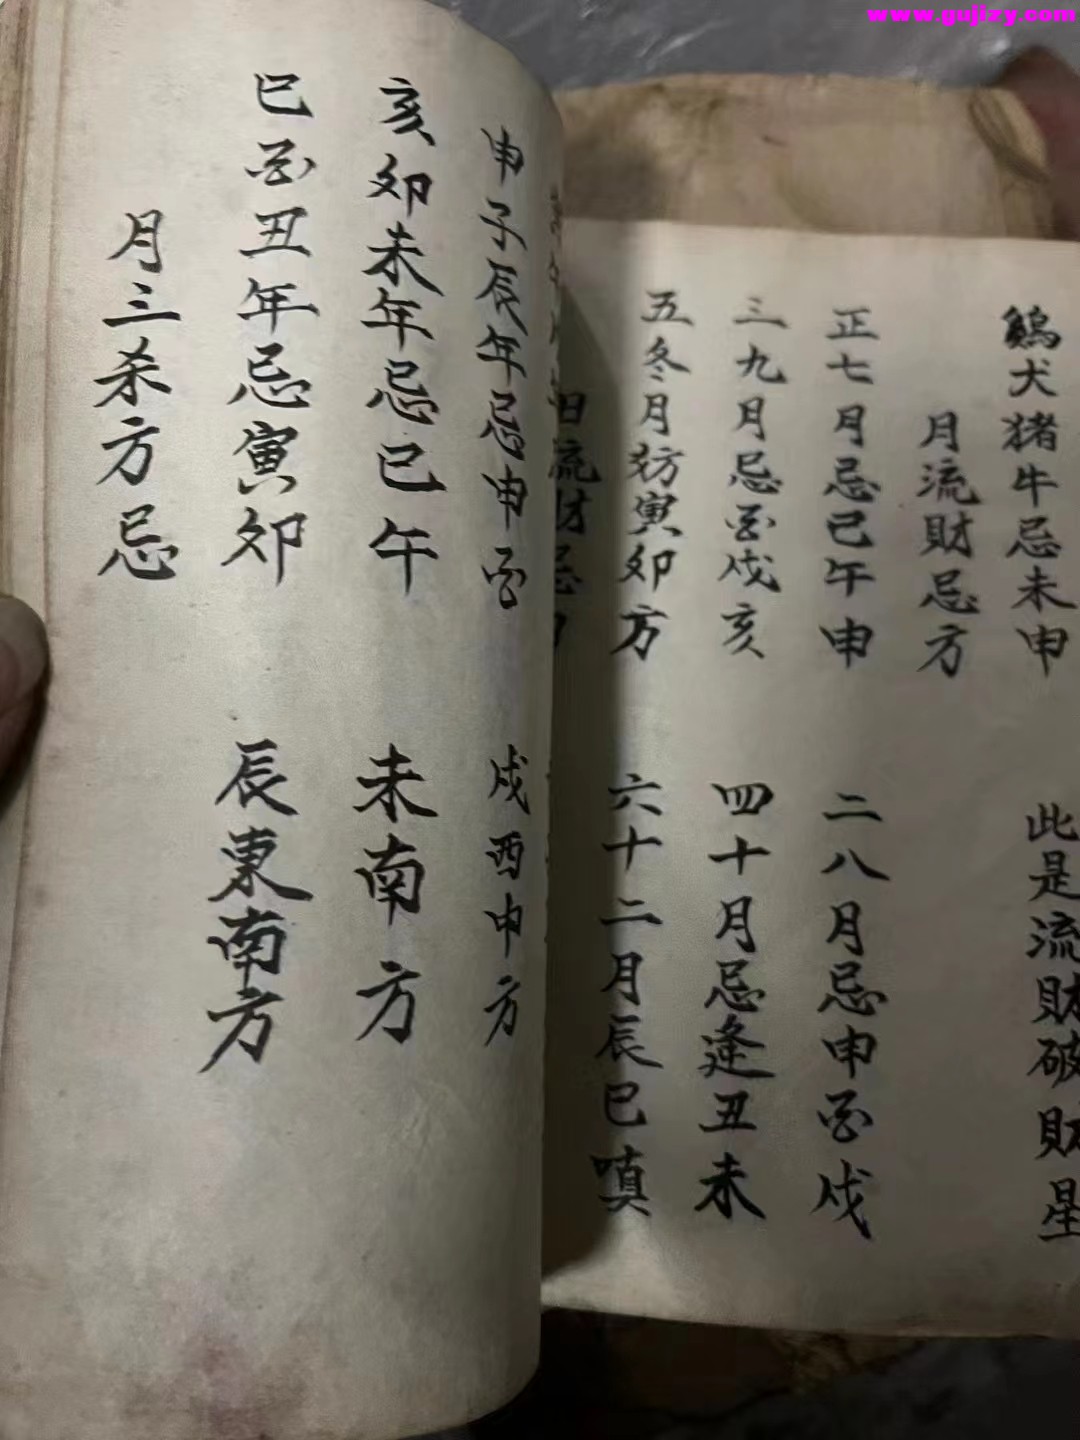 www.gujizy.com
鷄犬猪牛忌未申 此是流財破財星
月流財忌方
正七月忌巳午申 二八月忌申酉戌
三九月忌酉戌亥 四十月忌逢丑未
五冬月妨寅卯方 六十二月辰巳嗔
日流財忌
申子辰年忌申酉 戌西申方
亥卯未年忌巳午 未南方
巳酉丑年忌寅卯 辰東南方
月三杀方忌